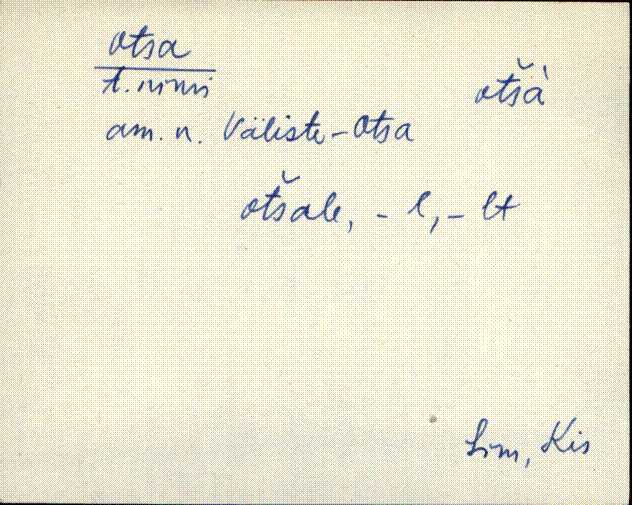 otsa
t. nimi
otšà
am. n. Väliste-Otsa
otšale, - l, - lt
Lim, Kis